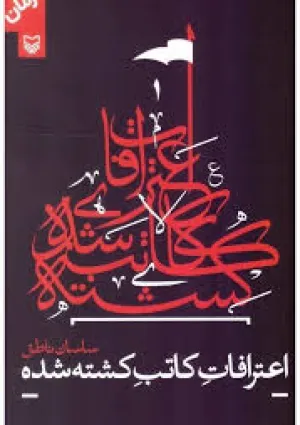 رمان
اعترافات
کاتب
کشته شده
ساسان ناطق
اعترافاتِ کاتبِ کشته‌شده